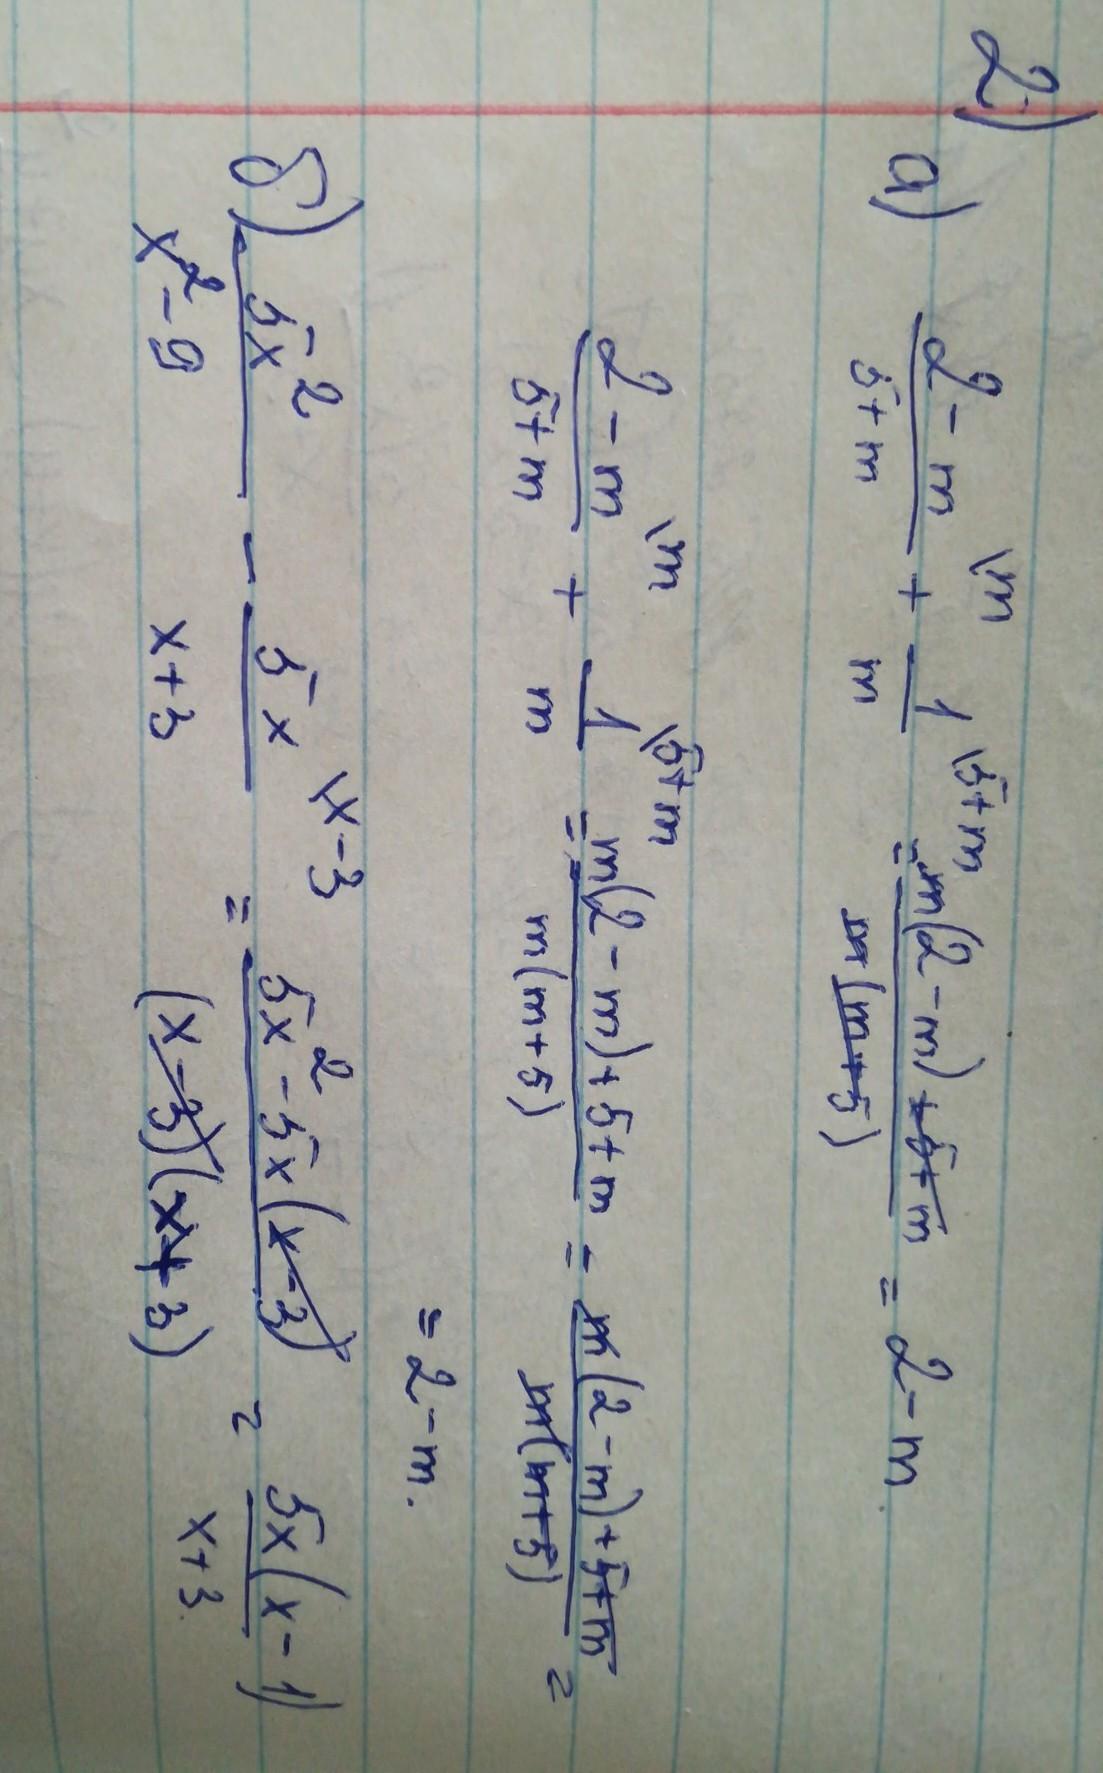 2)
а) (2-m)/(5+m) \m + 1/m \5+m = (m(2-m)+5+m)/(m(m+5)) = 2-m
(2-m)/(5+m) \m + 1/m \5+m = (m(2-m)+5+m)/(m(m+5)) = (m(2-m)+5+m)/(m(m+5)) =
= 2-m.
б) 5x²/(x²-9) - 5x/(x+3) \x-3 = (5x²-5x(x-3))/((x-3)(x+3)) = 5x(x-1)/(x+3).